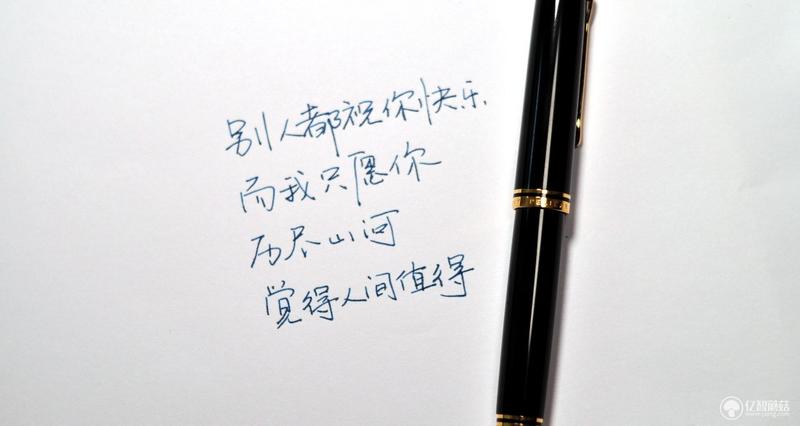 别人都祝你快乐
而我只愿你
历尽山河
觉得人间值得
亿智蘑菇